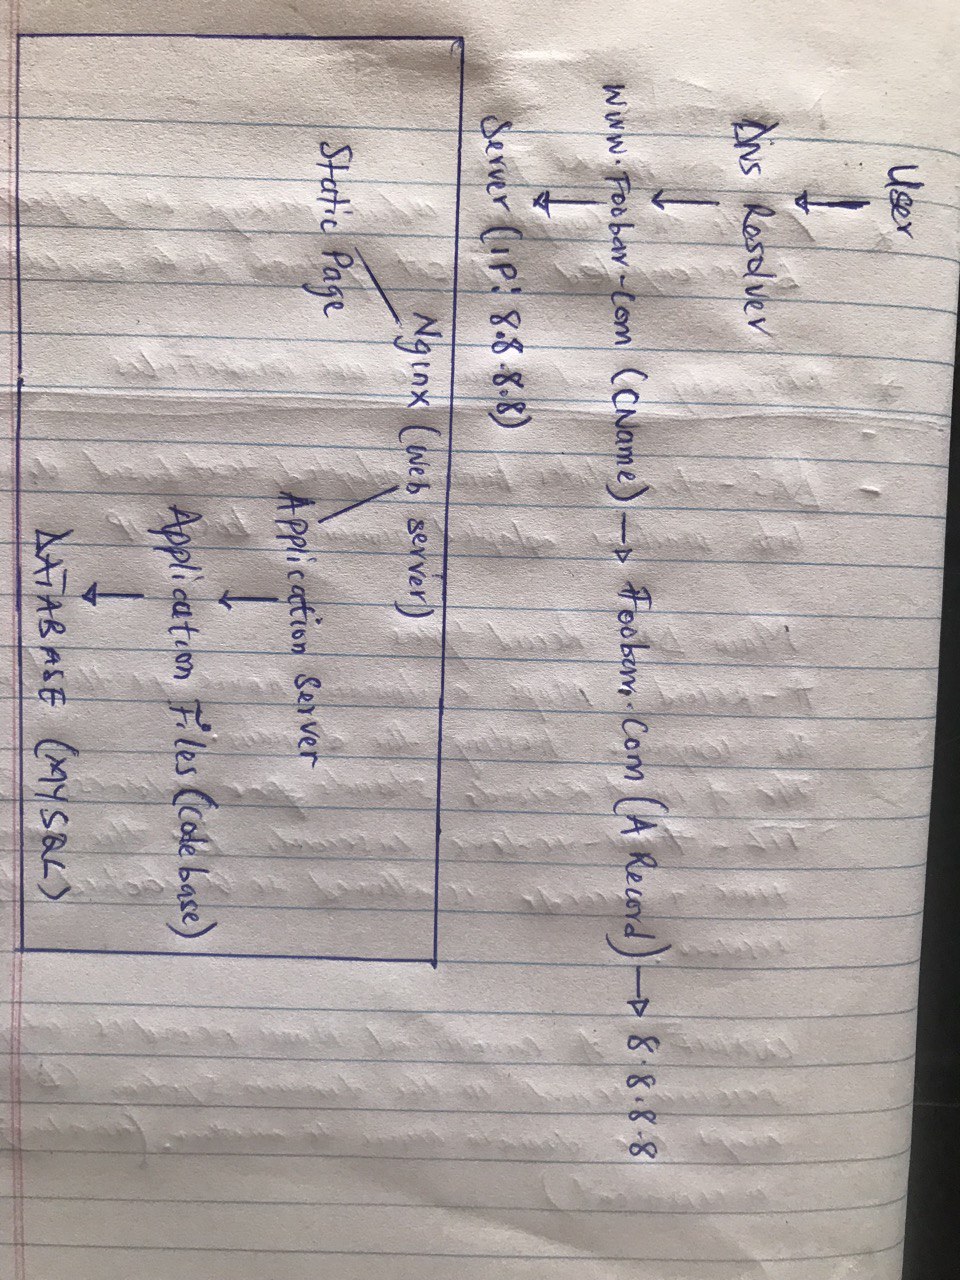 User
DNS Resolver
www.Foobar.com (CName) → Foobar.Com (A Record) → 8.8.8.8
Server (IP: 8.8.8.8)
Nginx (web server)
Static Page
Application Server
Application Files (Codebase)
DATABASE (MYSQL)